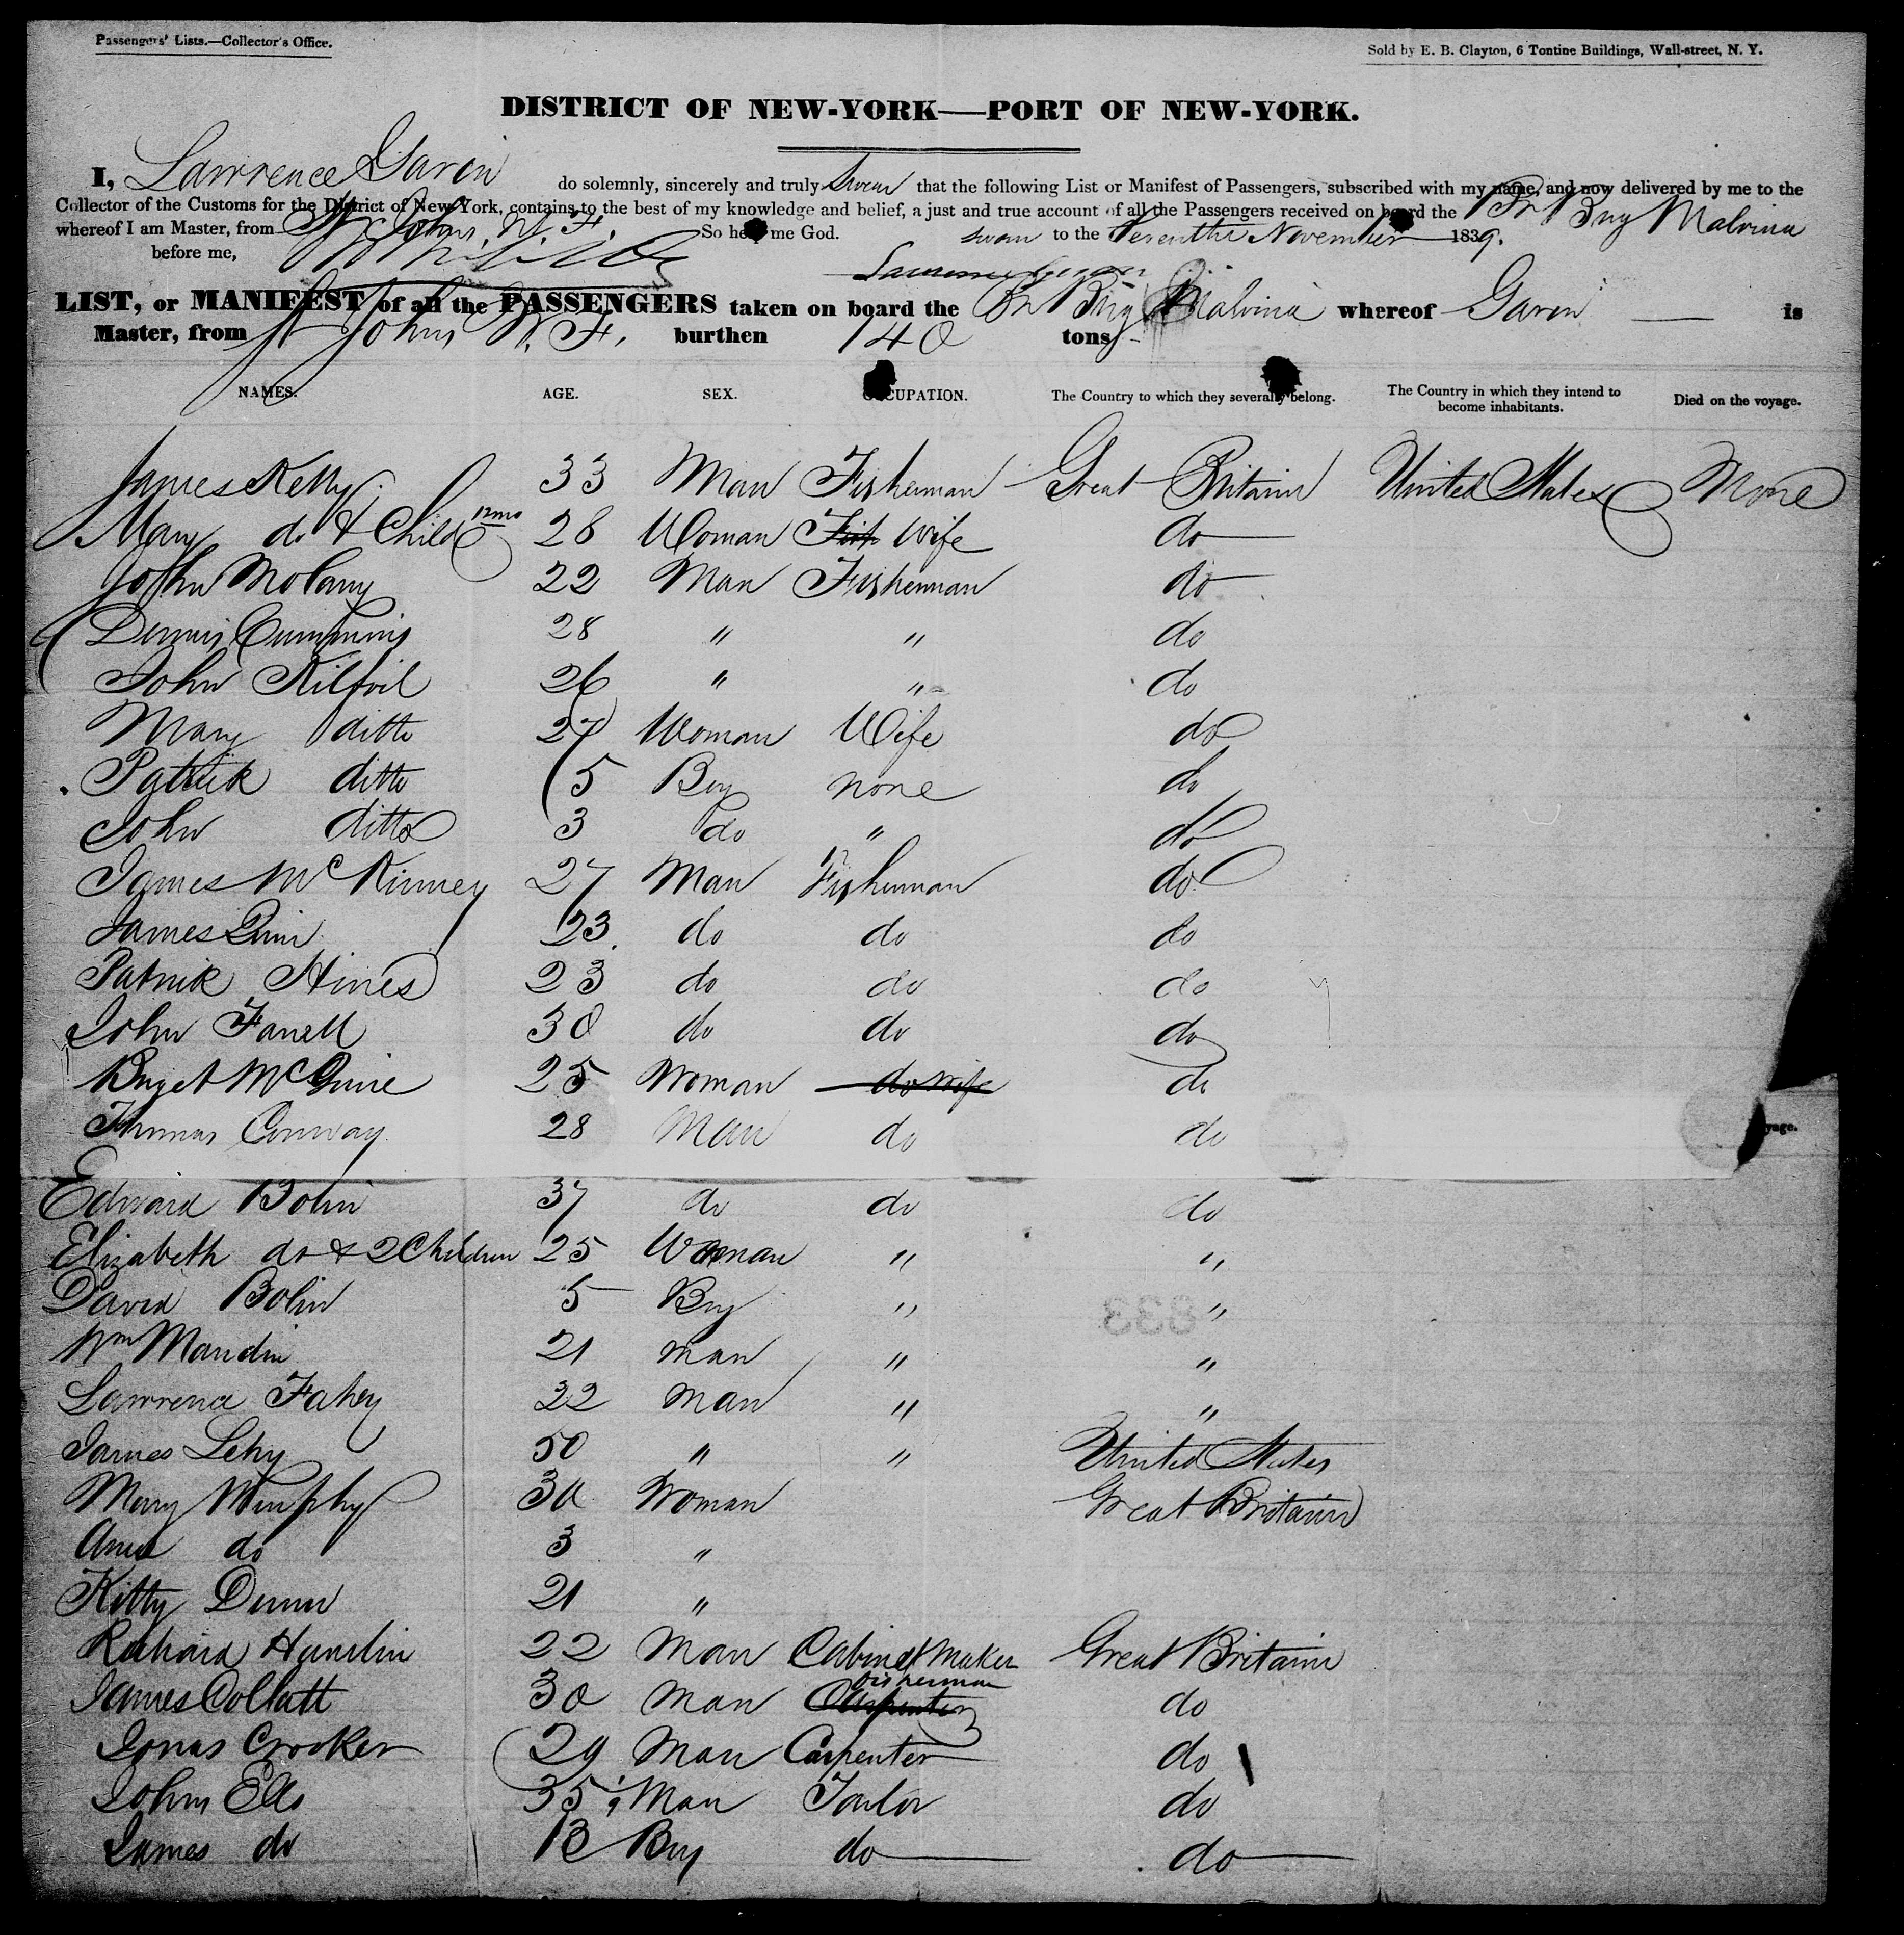 Passengers' Lists.—Collector's Office.
Sold by E. B. Clayton, 6 Tontine Buildings, Wall-street, N. Y.
DISTRICT OF NEW-YORK—PORT OF NEW-YORK.
I, Lawrence Gavin do solemnly, sincerely and truly Swear that the following List or Manifest of Passengers, subscribed with my name, and now delivered by me to the
Collector of the Customs for the District of New York, contains to the best of my knowledge and belief, a just and true account of all the Passengers received on board the Br Brig Malvina
whereof I am Master, from St Johns, N. F. So help me God. sworn to the Seventh November 1839.
before me,
LIST, or MANIFEST of all the PASSENGERS taken on board the Br Brig Malvina whereof Gavin is
Master, from St Johns N. F. burthen 140 tons
NAMES. AGE. SEX. OCCUPATION. The Country to which they severally belong. The Country in which they intend to become inhabitants. Died on the voyage.
James Kelly 33 Man Fisherman Great Britain United States None
Mary do & Child 12mo 28 Woman Fish Wife do
John Molany 22 Man Fisherman do
Dennis Cummins 28 " " do
John Kilfoil 26 " " do
Mary ditto 27 Woman Wife do
Patrick ditto 5 Boy none do
John ditto 3 do " do
James McKinney 27 Man Fisherman do
James Quin 23 do do do
Patrick Hines 23 do do do
John Farrell 30 do do do
Briget McGuire 25 Woman do wife do
Thomas Conway 28 Man do do
yage.
Edward Bolin 37 do do do
Elizabeth do & 2 Children 25 Woman " "
David Bolin 5 Boy " "
833
Wm Mandin 21 man " "
Lawrence Fahey 22 man " "
James Lehy 50 " " United States
Mary Murphy 30 Woman Great Britain
Ann do 3 "
Kitty Dunn 21 "
Richard Hanslin 22 Man Cabinet Maker Great Britain
James Collatt 30 man Carpenter fisherman do
Jonas Crooker 29 Man Carpenter do
John Ells 35 Man Tailor do
James do 13 Boy do do